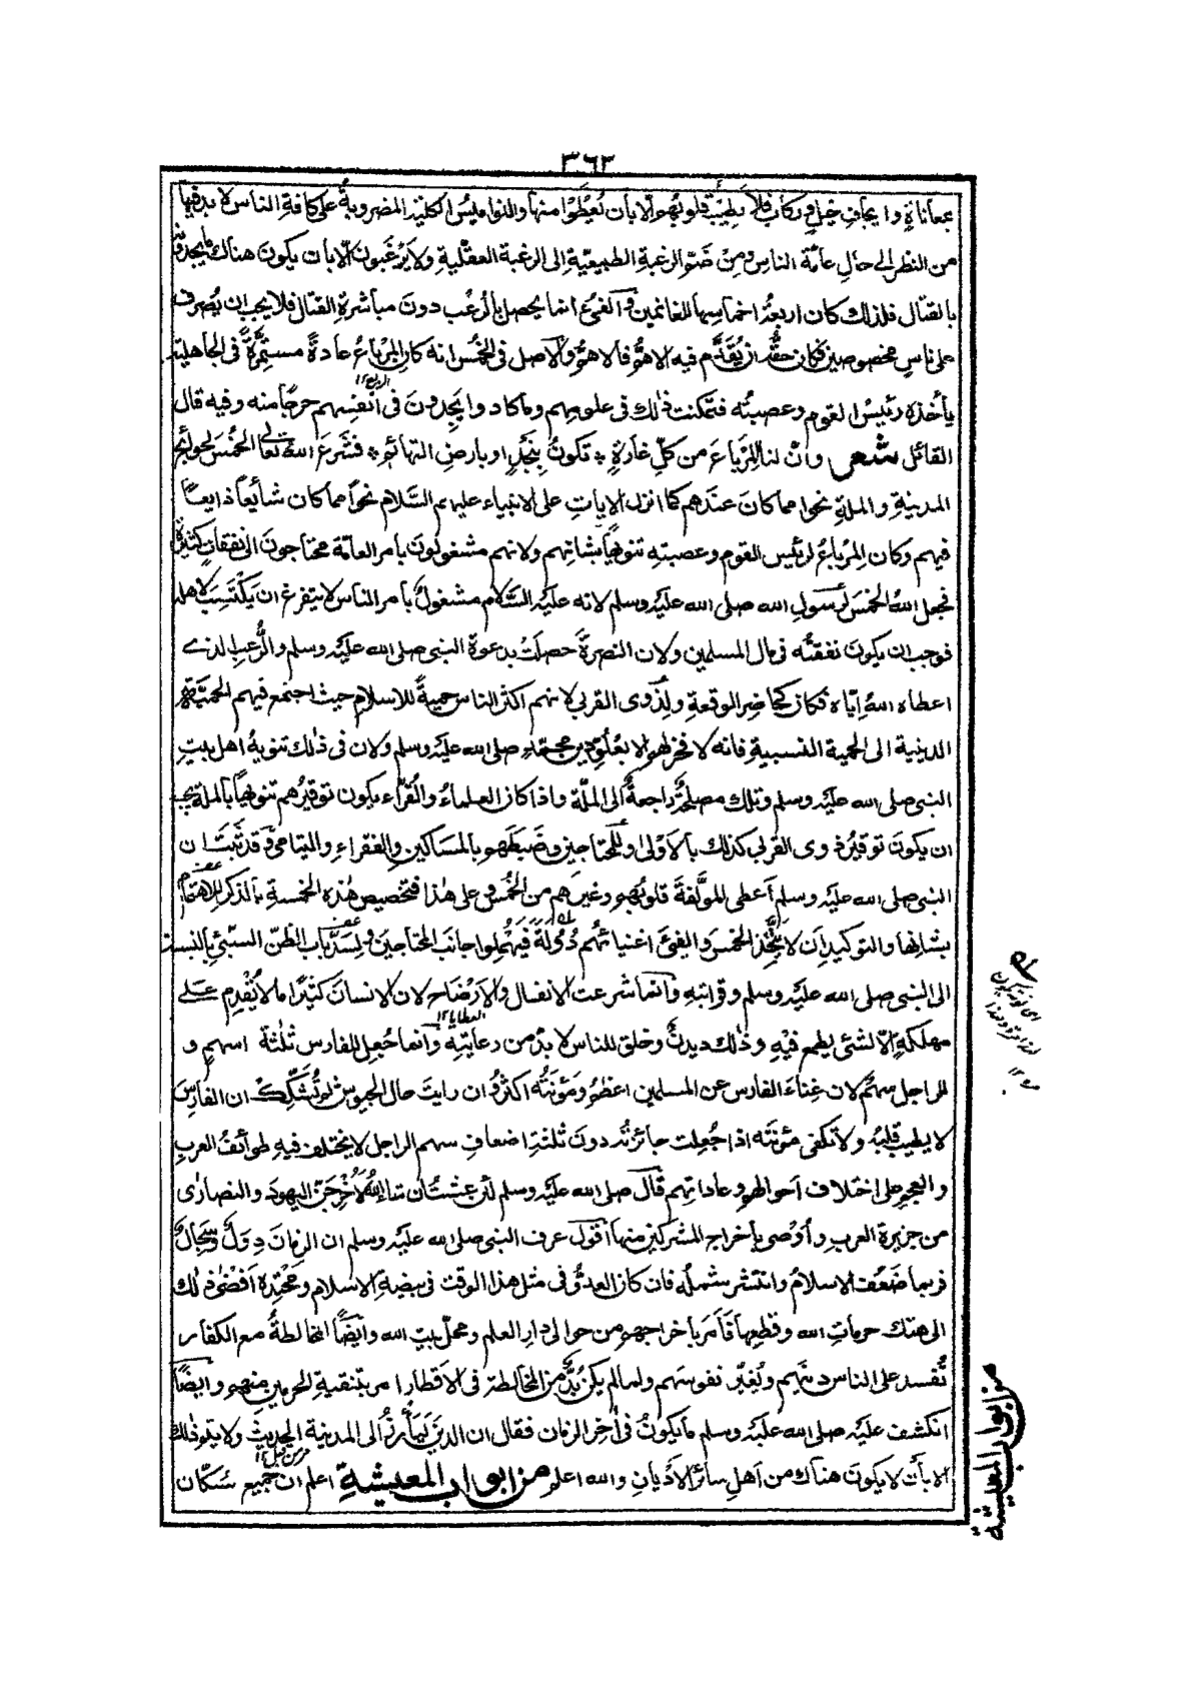 ٣٦٢
بمعاناة وايجاف خيل وركاب فلا تطيب قلوبهم الا بان تُعْطَوْا منها والنواميس الكلية المضروبة على كافة الناس لا بد فيها
من النظر الى حال عامّة الناس ومن ضَمّ الرغبة الطبيعيّة الى الرغبة العقلية ولا يَرْغَبون الّا بان يكون هناك ما يجدونه
بالقتال فلذلك كان اربعةُ اخماسها للغانمين والفيءُ انما يحصل بالرُعْب دون مباشرةِ القتال فلا يجب ان يُصرف
على ناسٍ مخصوصين فكان حقُّه ان يُقدَّم فيه الاهمُّ فالاهمُّ والاصل في الخُمس انه كان المِرْباعُ عادةً مستمِرَّةً في الجاهلية
يأخذه رئيسُ القوم وعصبتُه فتمكنت ذلك في علومهم وما كادوا يجدون في انفسِهم حرجًا منه وفيه قال
القائل شعر وانّ لنا المِرباعَ من كلّ غارةٍ * تكونُ بنَجْدٍ او بارضِ التهائم * فشَرَعَ اللهُ تعالى الخُمسَ لحوائج
المدينةِ والملةِ نحوا مما كان عندهم كما انزل الايات على الانبياء عليهم السّلام نحوًا مما كان شائعًا ذايعًا
فيهم وكان المِرباعُ لرئيس القوم وعصبتِه تنويهًا بشانهم ولانهم مشغولون بامر العامّة محتاجون الى نفقات كثيرة
فجعل اللهُ الخمسَ لرسولِ الله صلى الله عليه وسلم لانه عليه السّلام مشغولٌ بامر الناس لا يتفرغ ان يَكْتَسِبَ لاهله
فوجب ان يكون نفقتُه في مال المسلمين ولان النصرةَ حصلت بدعوة النبي صلى الله عليه وسلم والرُّعبِ الذي
اعطاه اللهُ إيّاه فكان كحاضِر الوقعةِ ولِذَوى القربى لانهم اكثرُ الناس حميةً للاسلام حيث اجتمع فيهم الحميّةُ
الدينية الى الحمية النسبية فانه لا فخرَ لهم الا بعلوِّ دينِ محمّد صلى الله عليه وسلم ولان في ذلك تنويهُ اهل بيتِ
النبي صلى الله عليه وسلم وتلك مصلحةٌ راجعةٌ الى الملّة واذا كان العلماءُ والقُرّاء يكون توقيرُهم تنويهًا بالملة يجب
ان يكون توقيرُ ذوى القربى كذلك بالاَولى وللمحتاجين وضَبَطَهم بالمساكين والفقراءِ واليتامى وقد ثَبَتَ ان
النبي صلى الله عليه وسلم اعطى المؤلَّفةَ قلوبُهم وغيرَهم من الخُمس وعلى هذا فتخصيص هذه الخمسة بالذكر للاهتمام
بشانها والتوكيد ان لا يَتَّخِذَ الخمسَ والفيءَ اغنياءُهم دُولةً فيُهملوا جانبَ المحتاجين ولسَدّ باب الظنّ السيّئ بالنسبة
الى النبي صلى الله عليه وسلم وقرابتِه وانما شرعت الانفال والاَرْضاخ لان الانسانَ كثيرًا ما لا يُقْدِم على
مهلكةٍ الّا لشئ يطمع فيه وذلك ديدنٌ وخلق للناس لا بدّ من رعايتِه وانما جُعِل للفارس ثلٰثة اسهمٍ و
للراجل سهمٌ لان غَناءَ الفارس عن المسلمين اعظمُ ومَؤنتُه اكثرُ وان رايتَ حال الجيوش لم تُشَكِّكْ ان الفارسَ
لا يطيب قلبُه ولا تكفى مئونتَه اذا جُعِلت جائزتُه دون ثلٰثةِ اضعافِ سهم الراجل لا يختلف فيه طوائفُ العربِ
والعجمِ على اختلاف احوالهم وعاداتِهم قال صلى الله عليه وسلم لئن عشتُ ان شاء اللهُ لَاُخْرِجَنّ اليهودَ والنصارٰى
من جزيرة العرب واَوْصٰى بإخراج المشركين منها اقول عرف النبي صلى الله عليه وسلم ان الزمانَ دِوَلٌ وسِجالٌ
فربما ضَعُف الاسلامُ وانتشر شملُه فان كان العدوُّ في مثل هذا الوقت في بيضةِ الاسلام ومحتدِه اَفْضٰى ذلك
الى هتك حرماتِ الله وقطعِها فاَمَر باخراجهم من حوالى دارِ العلم ومحلّ بيتِ الله وايضًا المخالطةُ مع الكفار
تُفسد على الناس دينَهم وتُغيّر نفوسَهم ولما لم يكن بُدٌّ من المخالطة في الاَقطار امر بتنقيةِ الحرمينِ منهم وايضًا
انكشف عليه صلى الله عليه وسلم ما يكونُ في اٰخر الزمان فقال ان الدين لَيَأْرِزُ الى المدينة الحديث ولا يتم ذلك
الا بأن لا يكون هناك من اهلِ سائر الاَديانِ والله اعلم من ابواب المعيشة اعلم ان جميع سُكّان
من ابواب المعيشة